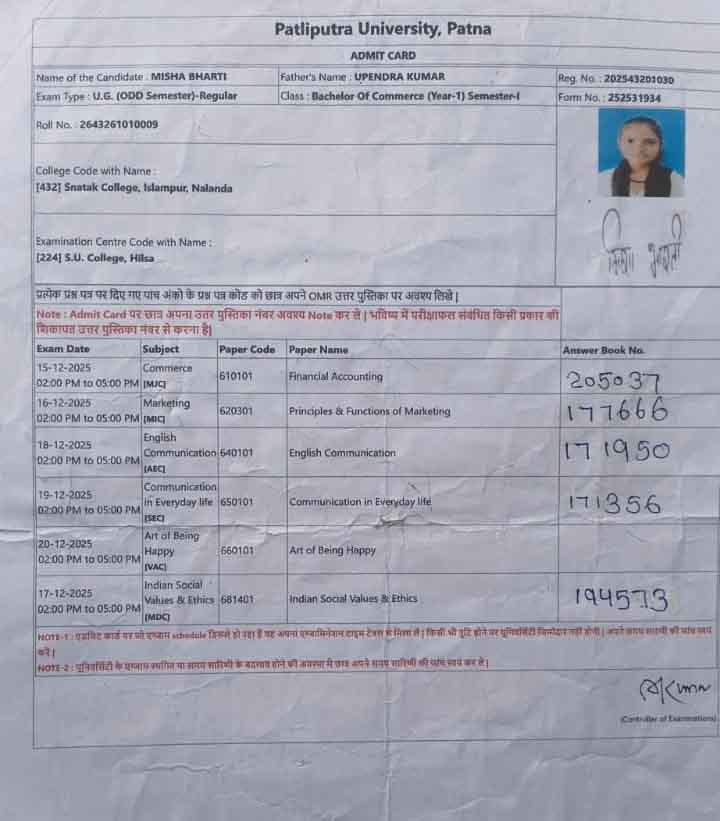 Patliputra University, Patna
ADMIT CARD
Name of the Candidate : MISHA BHARTI Father's Name : UPENDRA KUMAR Reg. No. : 202543201030
Exam Type : U.G. (ODD Semester)-Regular Class : Bachelor Of Commerce (Year-1) Semester-I Form No. : 252531934
Roll No. : 2643261010009
College Code with Name :
[432] Snatak College, Islampur, Nalanda
Examination Centre Code with Name :
[224] S.U. College, Hilsa
प्रत्येक प्रश्न पत्र पर दिए गए पांच अंको के प्रश्न पत्र कोड को छात्र अपने OMR उत्तर पुस्तिका पर अवश्य लिखे |
Note : Admit Card पर छात्र अपना उत्तर पुस्तिका नंबर अवश्य Note कर ले | भविष्य में परीक्षाफल संबंधित किसी प्रकार की
शिकायत उत्तर पुस्तिका नंबर से करना है|
Exam Date Subject Paper Code Paper Name Answer Book No.
15-12-2025
02:00 PM to 05:00 PM Commerce
[MJC] 610101 Financial Accounting 205037
16-12-2025
02:00 PM to 05:00 PM Marketing
[MIC] 620301 Principles & Functions of Marketing 177666
18-12-2025
02:00 PM to 05:00 PM English
Communication
[AEC] 640101 English Communication 171950
19-12-2025
02:00 PM to 05:00 PM Communication
in Everyday life
[SEC] 650101 Communication in Everyday life 171356
20-12-2025
02:00 PM to 05:00 PM Art of Being
Happy
[VAC] 660101 Art of Being Happy
17-12-2025
02:00 PM to 05:00 PM Indian Social
Values & Ethics
[MDC] 681401 Indian Social Values & Ethics 194573
NOTE-1 : एडमिट कार्ड पर जो एग्जाम schedule डिस्प्ले हो रहा है वह अपना एग्जामिनेशन टाइम टेबल से मिला ले | किसी भी त्रुटि होने पर यूनिवर्सिटी जिम्मेदार नहीं होगी | अपने समय सारणी की जांच स्वयं
करें |
NOTE-2 : यूनिवर्सिटी के एग्जाम स्थगित या समय सारिणी के बदलाव होने की अवस्था में छात्र अपने समय सारिणी की जांच स्वयं कर ले |
(Controller of Examinations)